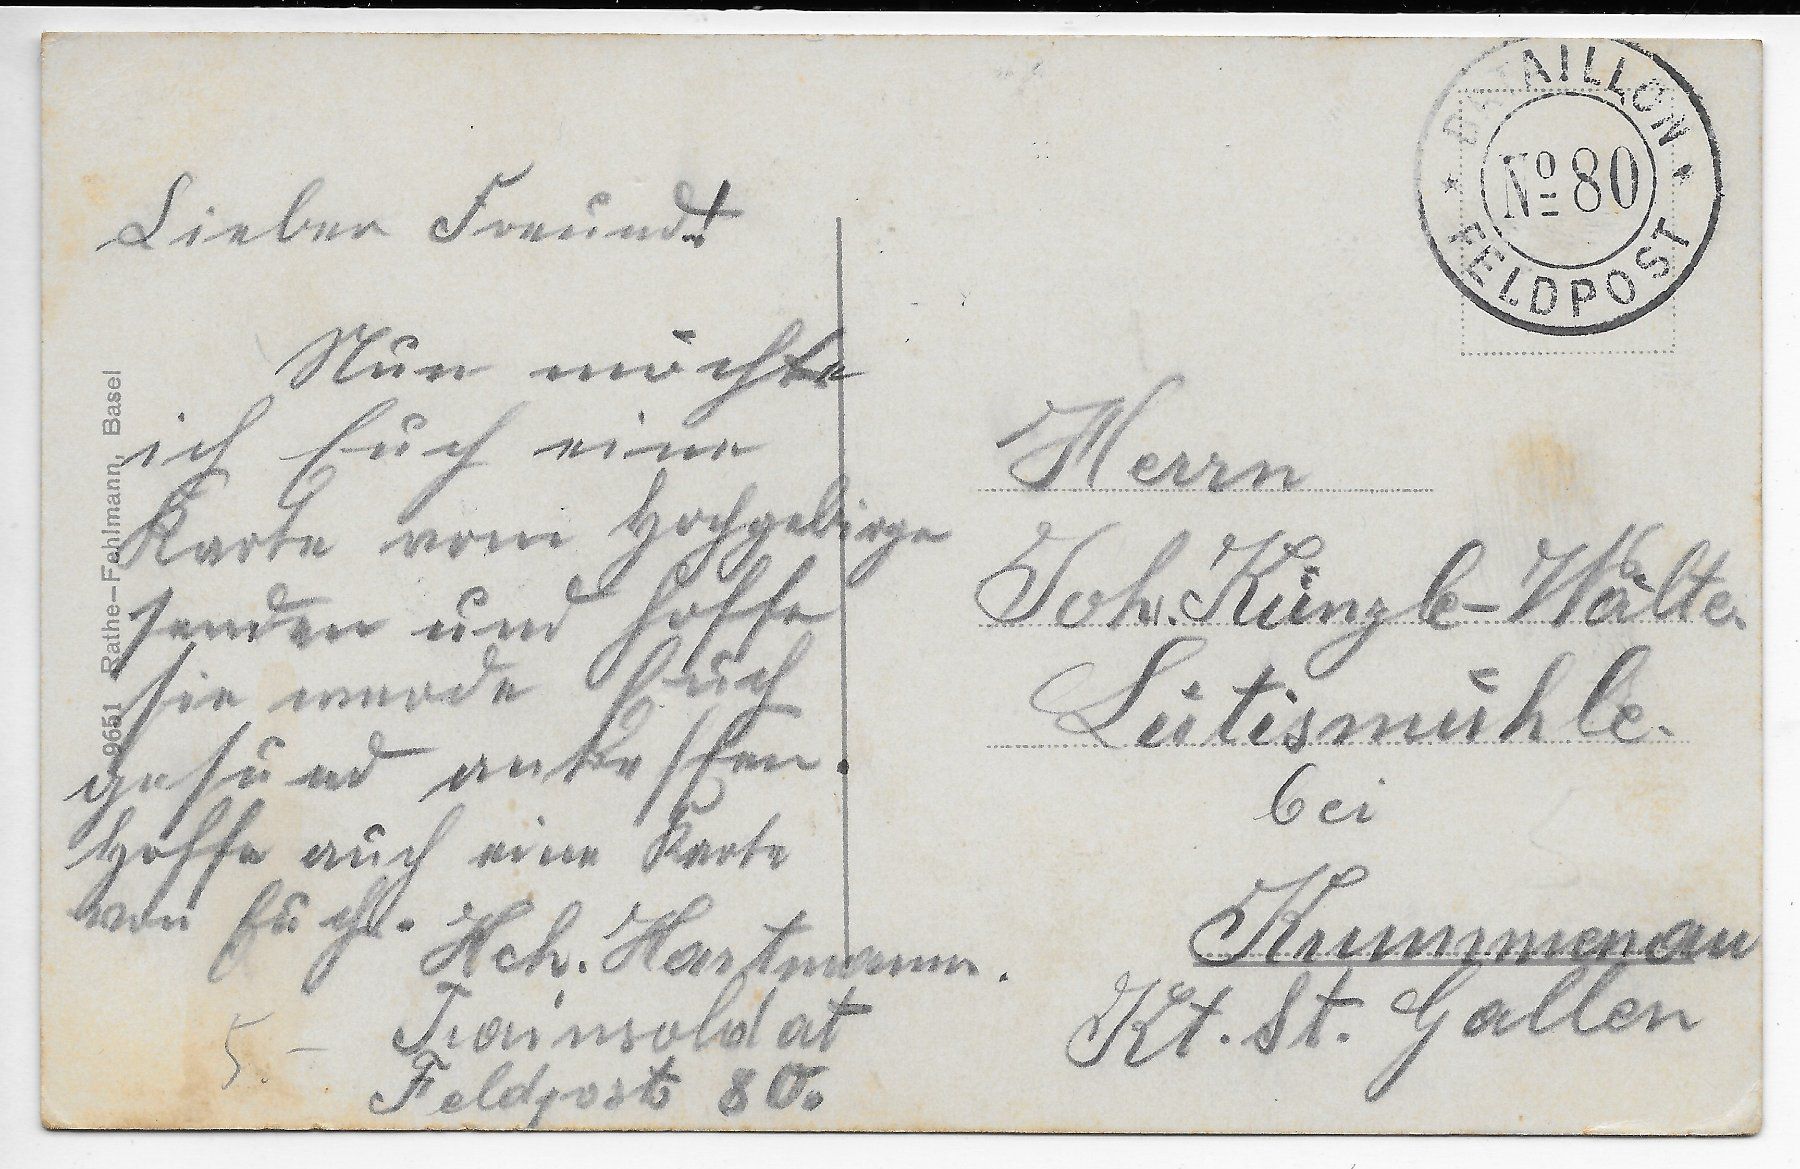 Lieber Freund!
Nun möchte
ich Euch eine
Karte vom Hochgebirge
senden und hoffe
sie werde Euch
gesund antreffen.
Hoffe auch eine Karte
von Euch.
Hch. Hartmann.
Trainsoldat
Feldpost 80.
5.–
9651 Rathe-Fehlmann, Basel
BATAILLON
No 80
FELDPOST
Herrn
Joh. Künzle-Wälte
Lütismühle.
bei
Krummenau
Kt. St. Gallen